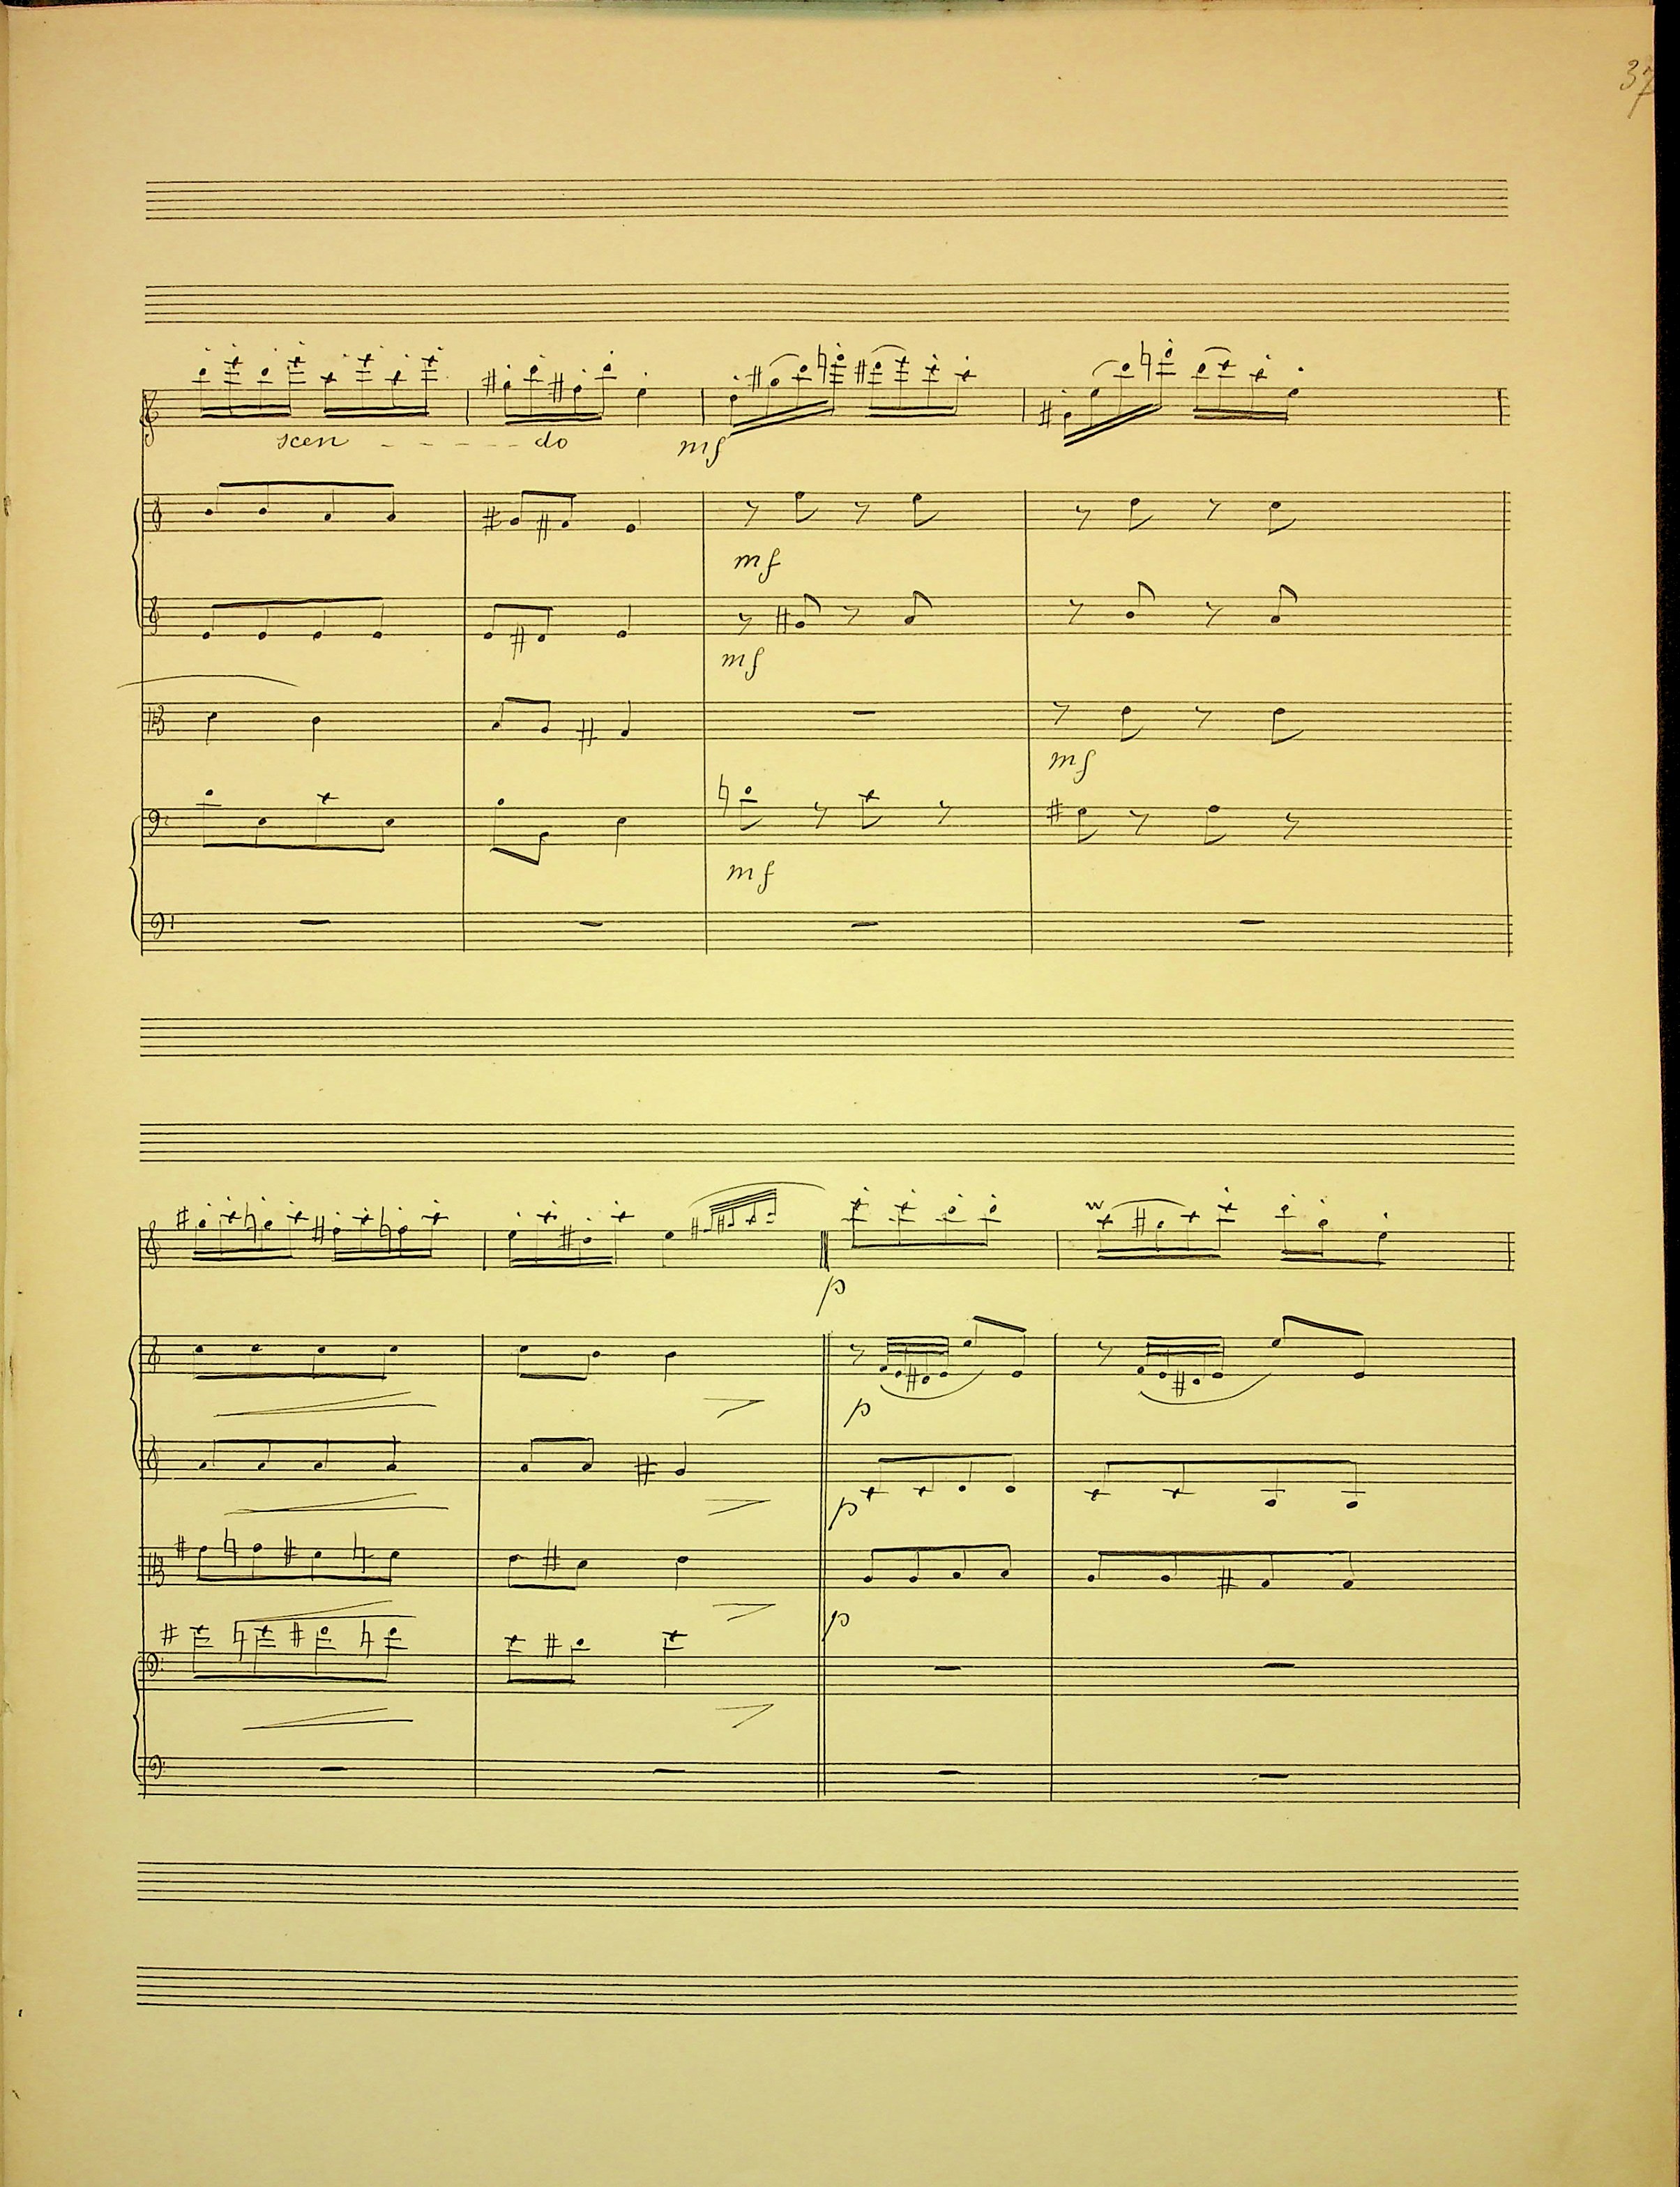 37
scen - - - - - do mf
mf
mf
mf
mf
p
p
p
p